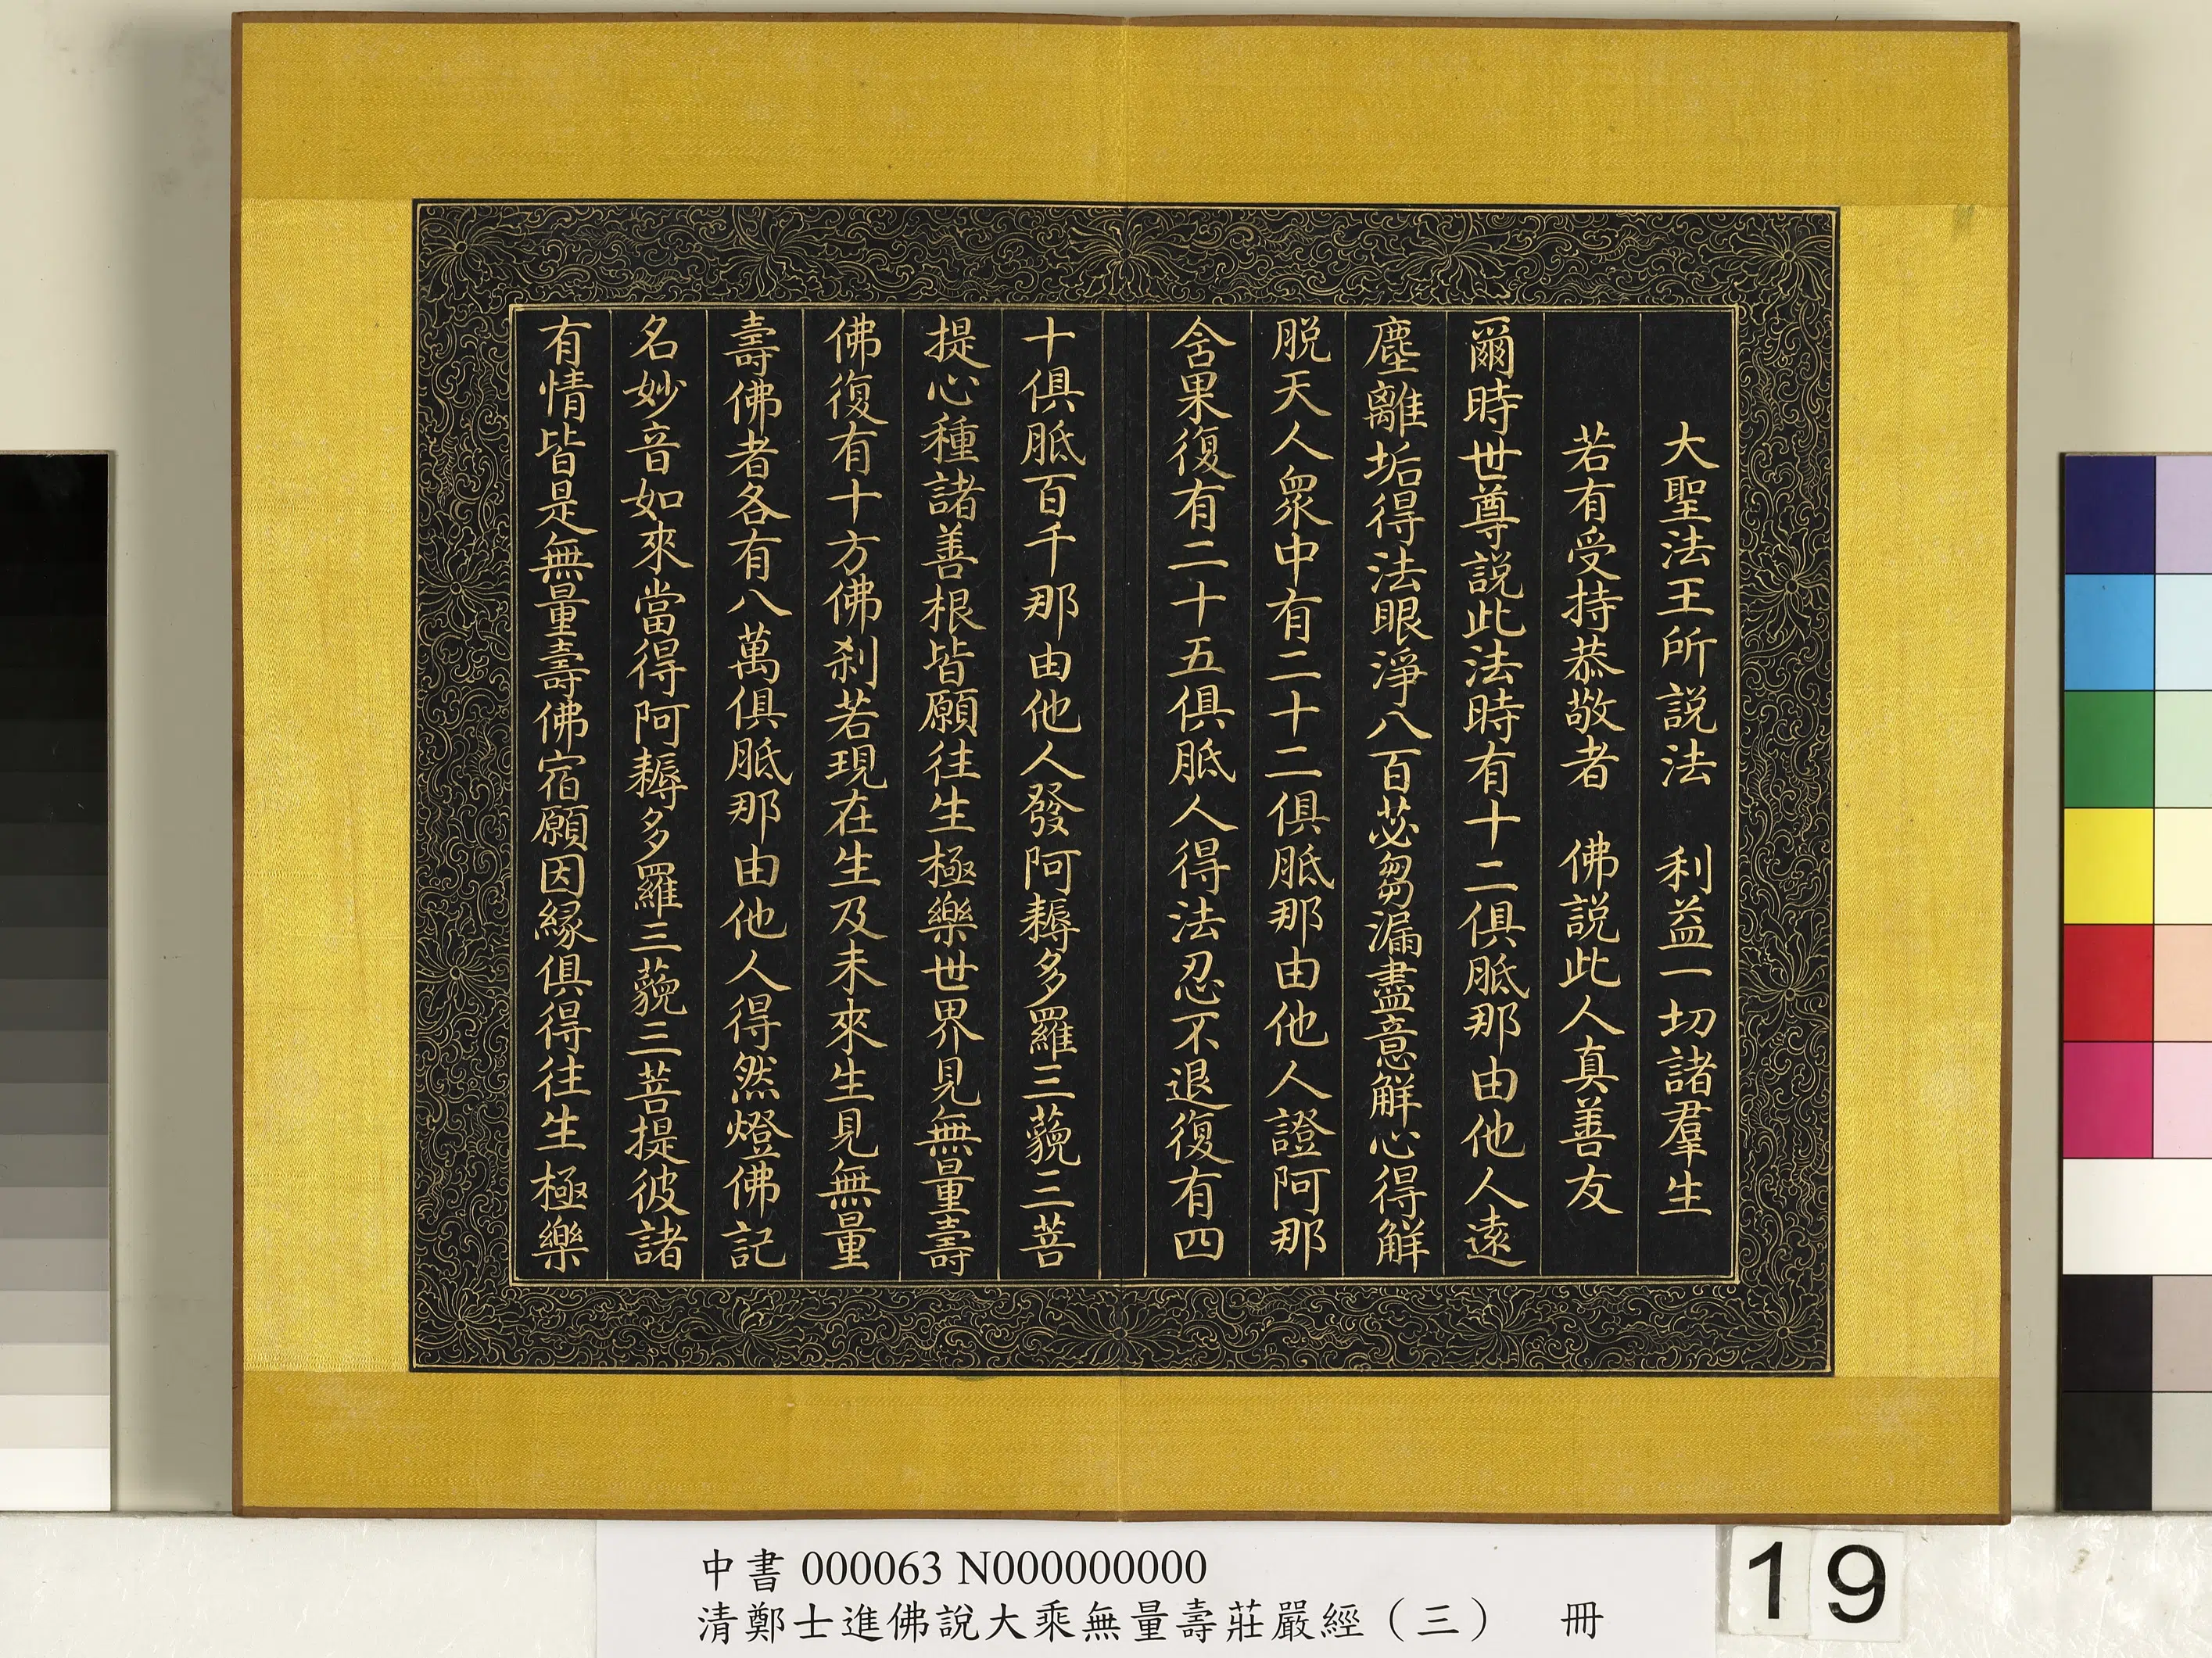 大聖法王所說法　利益一切諸羣生
若有受持恭敬者　佛說此人真善友
爾時世尊說此法時有十二俱胝那由他人遠
塵離垢得法眼淨八百苾芻漏盡意解心得解
脫天人眾中有二十二俱胝那由他人證阿那
含果復有二十五俱胝人得法忍不退復有四
十俱胝百千那由他人發阿耨多羅三藐三菩
提心種諸善根皆願往生極樂世界見無量壽
佛復有十方佛剎若現在生及未來生見無量
壽佛者各有八萬俱胝那由他人得然燈佛記
名妙音如來當得阿耨多羅三藐三菩提彼諸
有情皆是無量壽佛宿願因緣俱得往生極樂
中書 000063 N000000000
清鄭士進佛說大乘無量壽莊嚴經（三）　冊
19